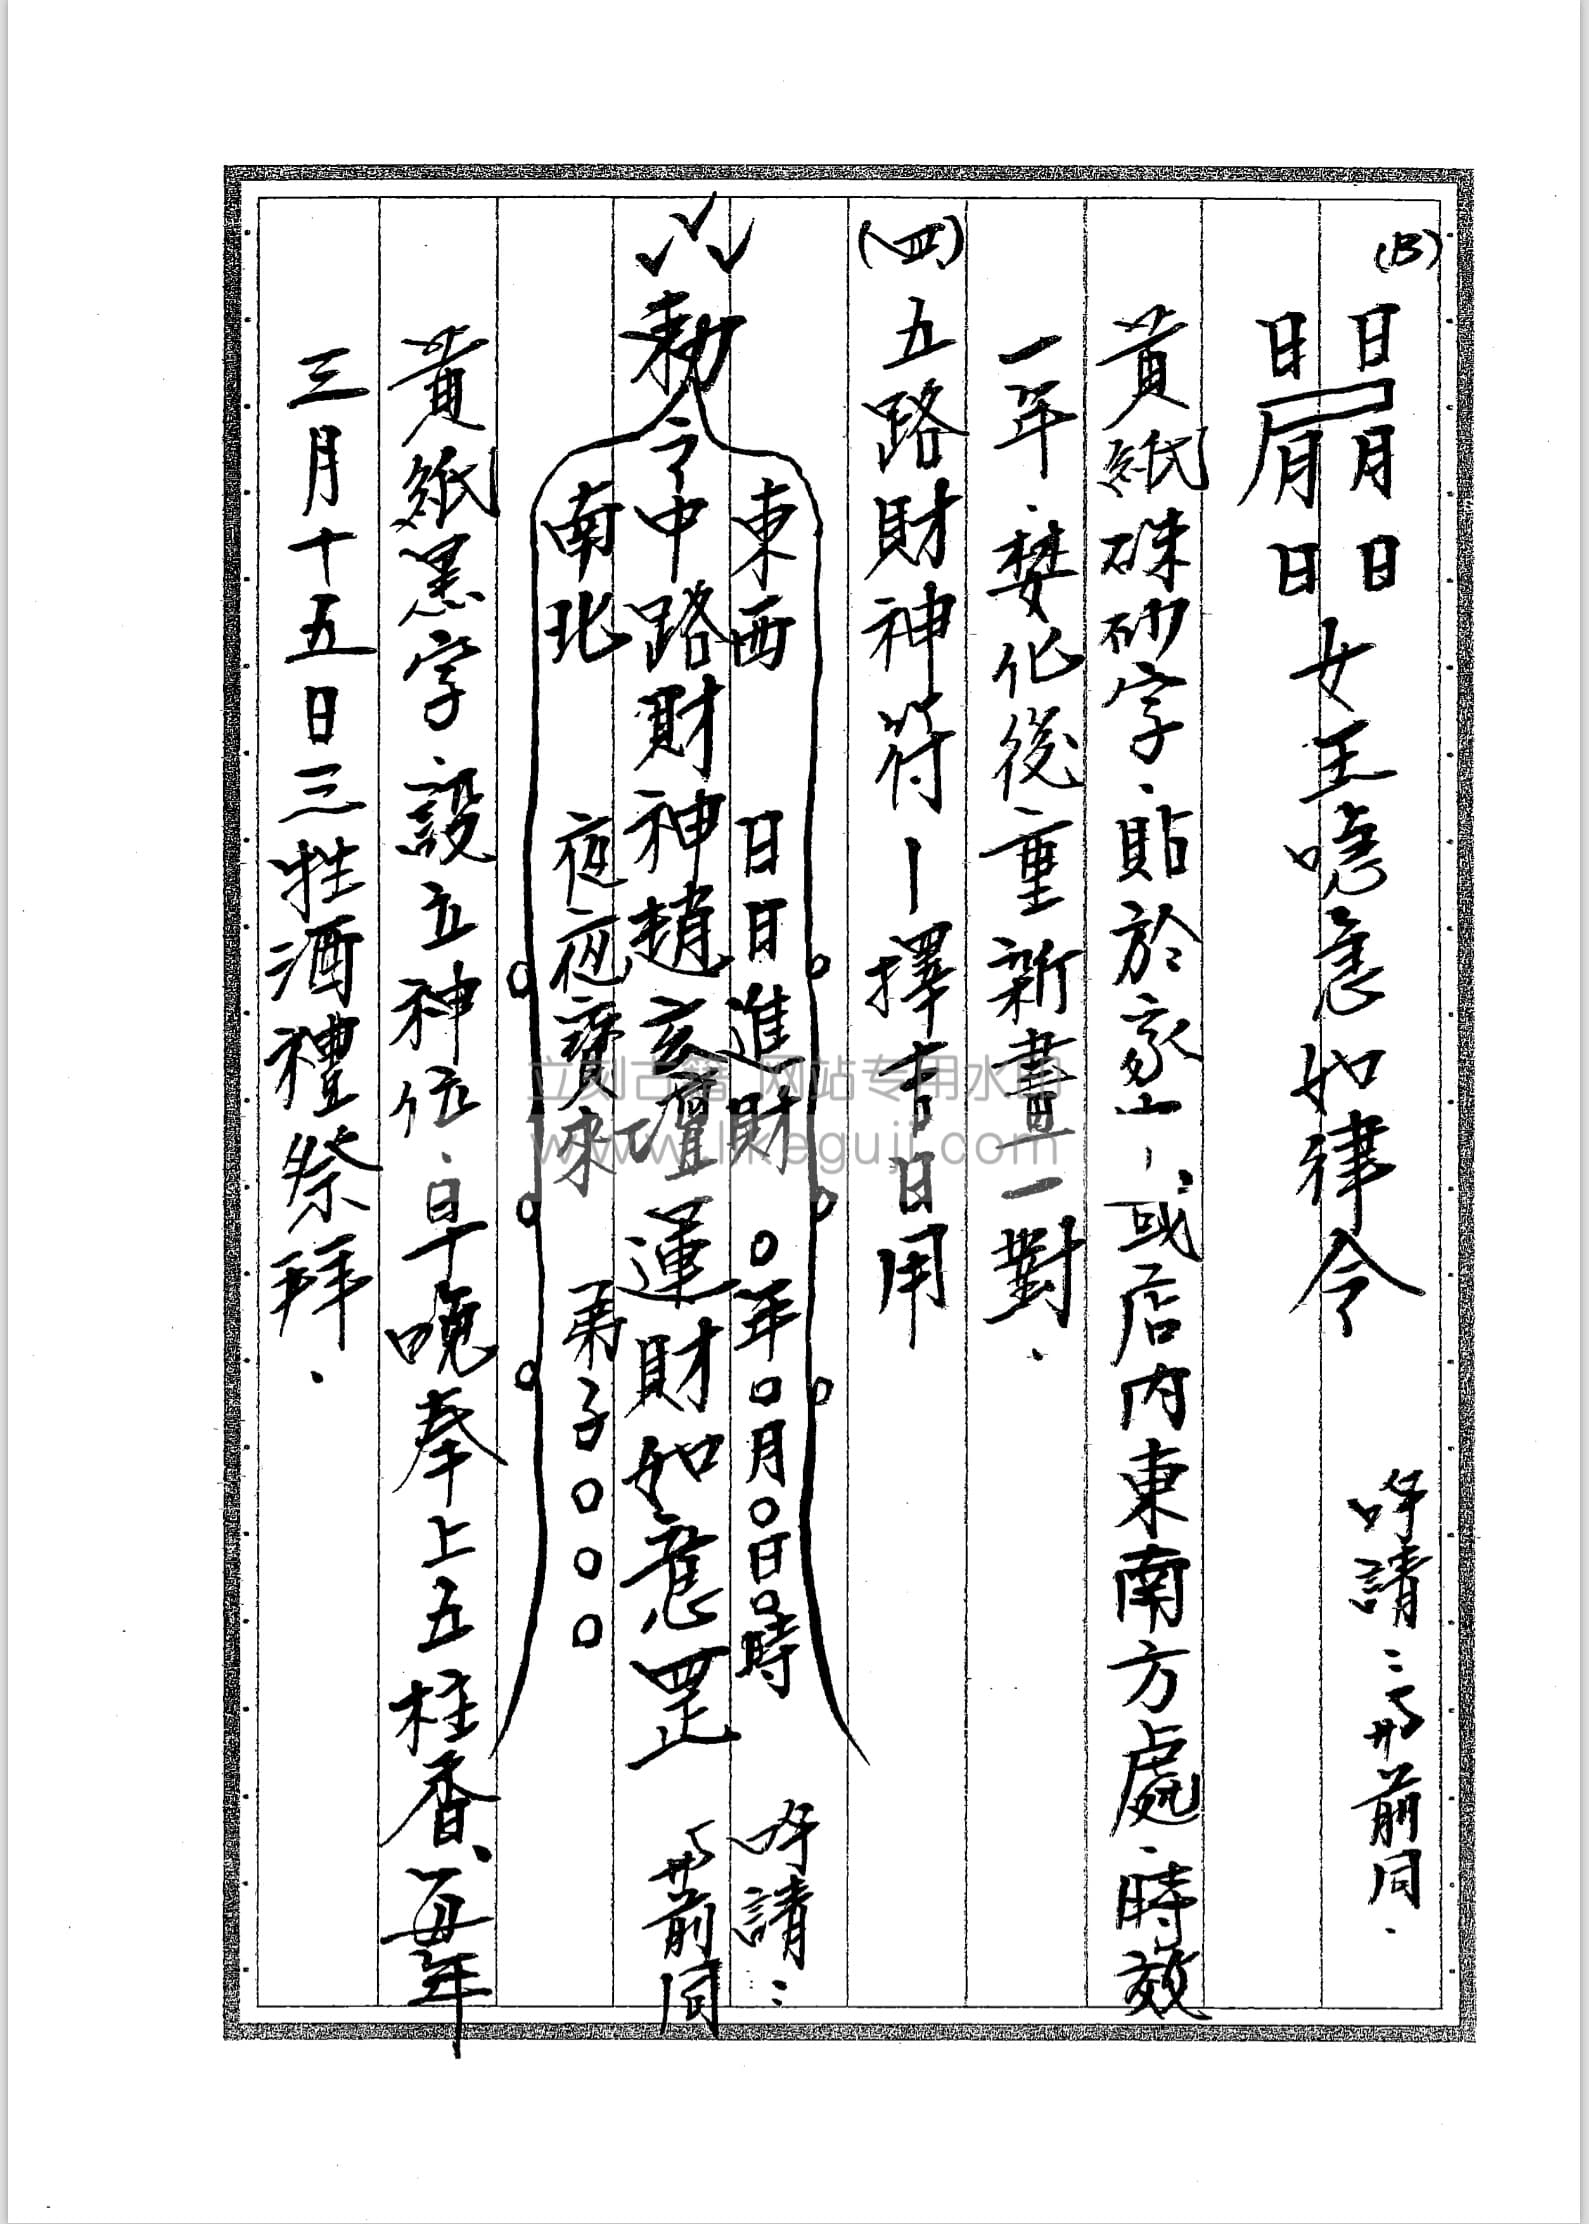 (B)
日月日
日尸月日
女王唵急如律令
呼請:帝前同.
黃紙硃砂字、貼於家,或店內東南方處、時效
一年、焚化後重新畫一對.
(四)五路財神符—擇吉日用
東西 日日進財 ○年○月○日○時
勅令中路財神趙玄壇運財如意罡
南北 夜夜寶來 弟子○○○
呼請:
前同
黃紙黑字、設立神位、早晚奉上五柱香、每年
三月十五日三牲酒禮祭拜.
立刻古籍 网站专用水印
www.likeguji.com